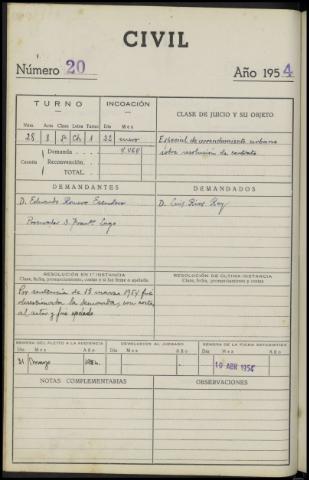 CIVIL
Número 20 Año 1954
TURNO INCOACIÓN CLASE DE JUICIO Y SU OBJETO
Núm. Acs. Clase Letra Turno Día Mes
28 1 8º Ch 1 22 enero
Especial de arrendamiento urbano
sobre resolución de contrato
Cuantía Demanda
Reconvención
TOTAL
DEMANDANTES DEMANDADOS
D. Eduardo Romero D. Luis Rios Rey
Procurador S. Lago
RESOLUCIÓN EN 1ª INSTANCIA RESOLUCIÓN DE ÚLTIMA INSTANCIA
Clase, fecha, pronunciamientos, costas y si es firme o apelada. Clase, fecha, pronunciamientos y costas
Por sentencia de 13 marzo 1954 fué
desestimada la demanda, con costas
al actor y fué apelada
REMESA DEL PLEITO A LA AUDIENCIA DEVOLUCIÓN AL JUZGADO REMESA DE LA FICHA ESTADÍSTICA
Día Mes Año Día Mes Año Día Mes Año
31 Marzo 1954 10 ABR 1954
NOTAS COMPLEMENTARIAS OBSERVACIONES